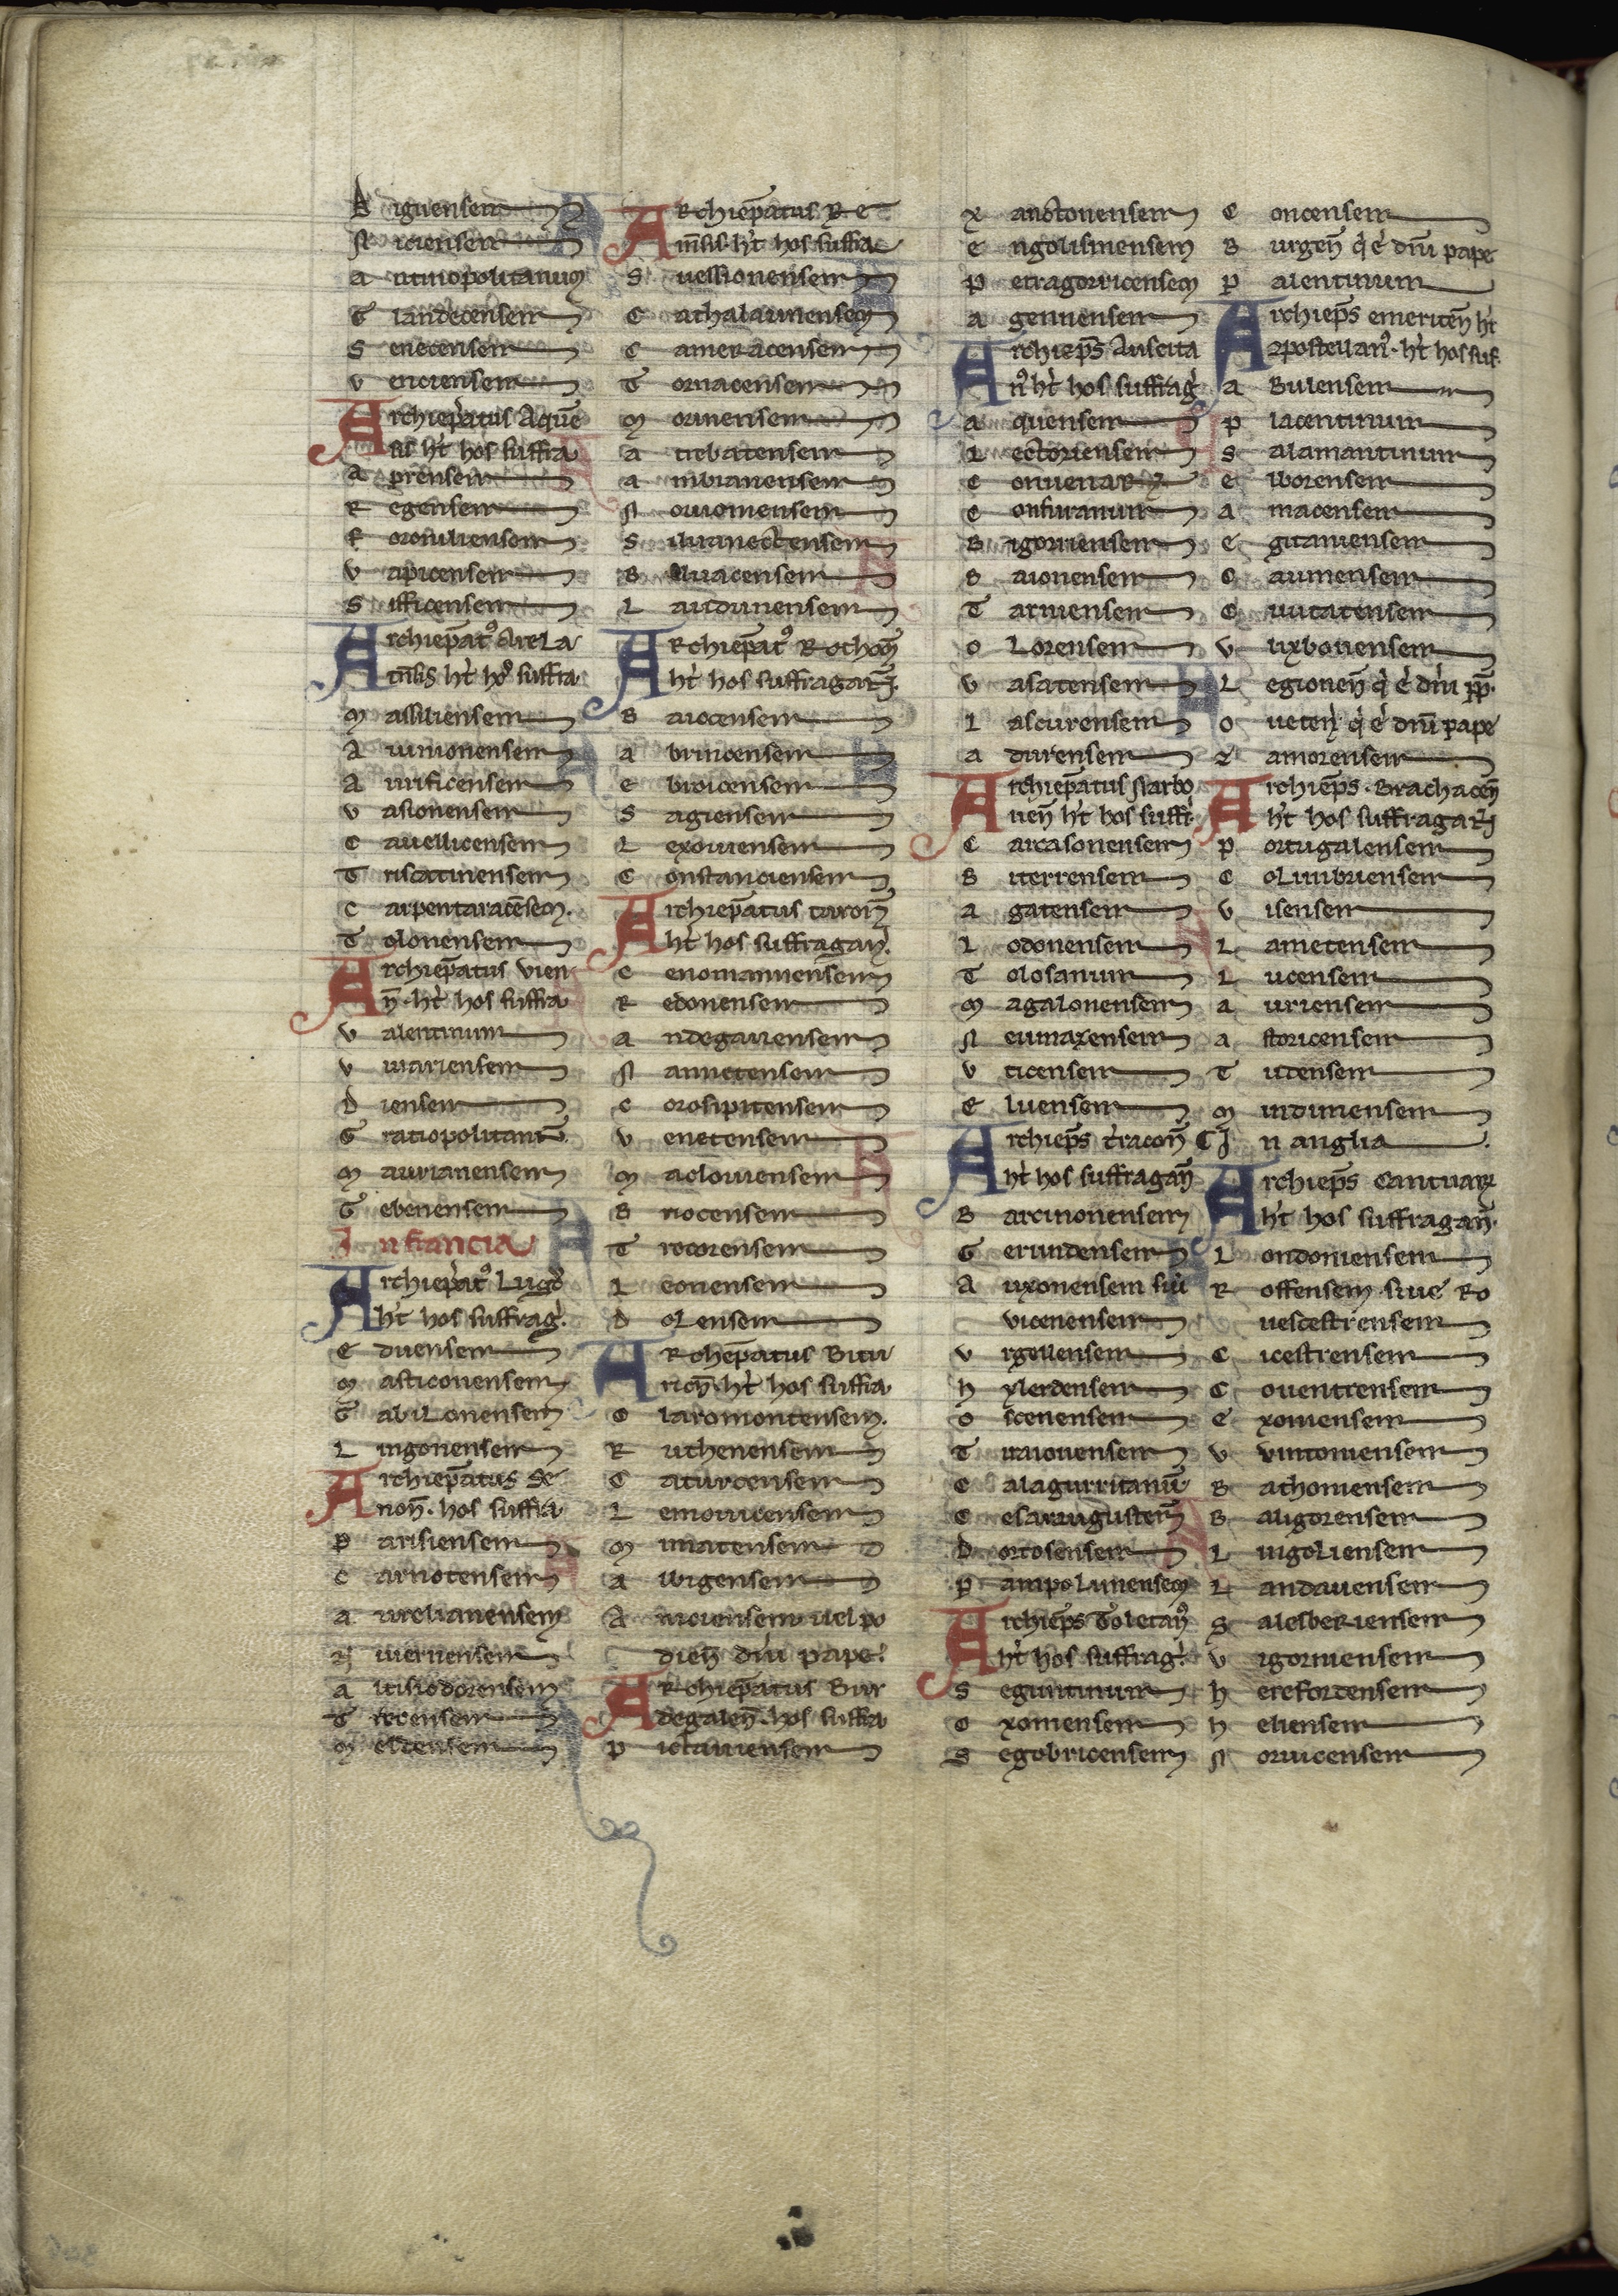 Diguensem
Niciensem
antinopolitanum
Glandecensem
Senecensem
Venciensem
Archiep̄atus Aquē
sis ht̄ hos suffra
aprensem
Regensem
Foroiuliensem
Vapicensem
Sissicensem
Archiep̄at⁹ Arela
tn̄sis ht̄ hos suffra
Massiliensem
Auinionensem
Aurificensem
Vasionensem
Cauellicensem
Triscatinensem
Carpentaracēsem.
Tolonensem
Archiep̄atus vien
n̄. ht̄ hos suffra
Valentinum
Viuariensem
Diensem
Gratiopolitanū.
Maurianensem
Gebenensem
In francia
Archiep̄at⁹ Lugd̄
ht̄ hos suffraḡ.
Eduensem
Masticonensem
Cabilonensem
Lingonensem
Archiep̄atus Se
non̄. hos suffra
Parisiensem
Carnotensem
aurelianensem
Niuernensem
altisiodorensem
Trecensem
Meldensem
ARchiep̄atus Re
mn̄sis. ht̄ hos suffra
Suessionensem
Cathalaunensem
Cameracensem
Tornacensem
Morinensem
atrebatensem
ambianensem
Nouiomensem
Siluanectensem
Beluacensem
Laudunensem
ARchiep̄at⁹ Rothom̄
ht̄ hos suffragan̄.
Baiocensem
abrincensem
ebroicensem
Sagiensem
Lexouiensem
Constanciensem
Archiep̄atus turon̄
ht̄ hos suffragan̄.
Cenomannensem
Redonensem
andegauensem
Nannetensem
Corosipitensem
Venetensem
Maclouiensem
Briocensem
Trecorensem
Leonensem
Dolensem
ARchep̄atus Bitu
ricn̄. ht̄ hos suffra.
Claromontensem.
Ruthenensem
Caturcensem
Lemouicensem
Mimatensem
Albigensem
Aniciensem uel po
dien̄ dn̄i pape.
ARchiep̄atus Bur
degalen̄. hos suffra
Pictauiensem
Xanctonensem
engolismensem
Petragorricensem
agennensem
Archiep̄s Auscita
n⁹ ht̄ hos suffraḡ
aquensem
Lectoriensem
Conuenarꝝ
Consuranum
Bigorriensem
Baionensem
Tarniensem
oLorensem
Vasatensem
Lascurensem
adurensem
Archiep̄atus Narbo
nen̄ ht̄ hos suffr̄.
Carcasonensem
Biterrensem
agatensem
Lodonensem
Tolosanum
Magalonensem
Neumaxensem
Vticensem
Eluensem
Archiep̄s t̄racon̄
ht̄ hos suffragan̄
Barcinonensem
Gerundensem
Auxonensem siu̅
vicenensem
Vrgellensem
hylerdensem
oscenensem
Tiraionensem
Calagurritanū.
Cesaraugustem̄
Dortosensem
Pampolunensem
Archiep̄s Toletan⁹
ht̄ hos suffraḡ.
Seguntinum
Oxomensem
Segobricensem
Concensem
Burgen̄ q̄ ē dn̄i pape
Palentinum
Archiep̄s emeriten̄ ht̄
Cōpostellan⁹. ht̄ hos suf.
aBulensem
Placentinum
Salamantinum
elborensem
amacensem
egitaniensem
Cauriensem
Ciuitatensem
Vlixbonensem
Legionen̄ q̄ ē dn̄i pp̄.
oueten̄. q̄ ē dn̄i pape
Zamorensem
Archiep̄s. Brachacen̄
ht̄ hos suffragan̄
Portugalensem
Colimbriensem
Visensem
Lametensem
Lucensem
auriensem
astoricensem
Tutensem
Mindunensem
¶ In anglia
Archiep̄s Cantuarꝝ
ht̄ hos suffragan̄.
Londoniensem
Roffensem. siue Ro
uescestrensem
Cicestrensem
Couentrensem
Exoniensem
Vvintoniensem
Bathoniensem
Bangorensem
Lingoliensem
Landauensem
SalesbeRiensem
Vigorniensem
herefordensem
heliensem
Noruicensem